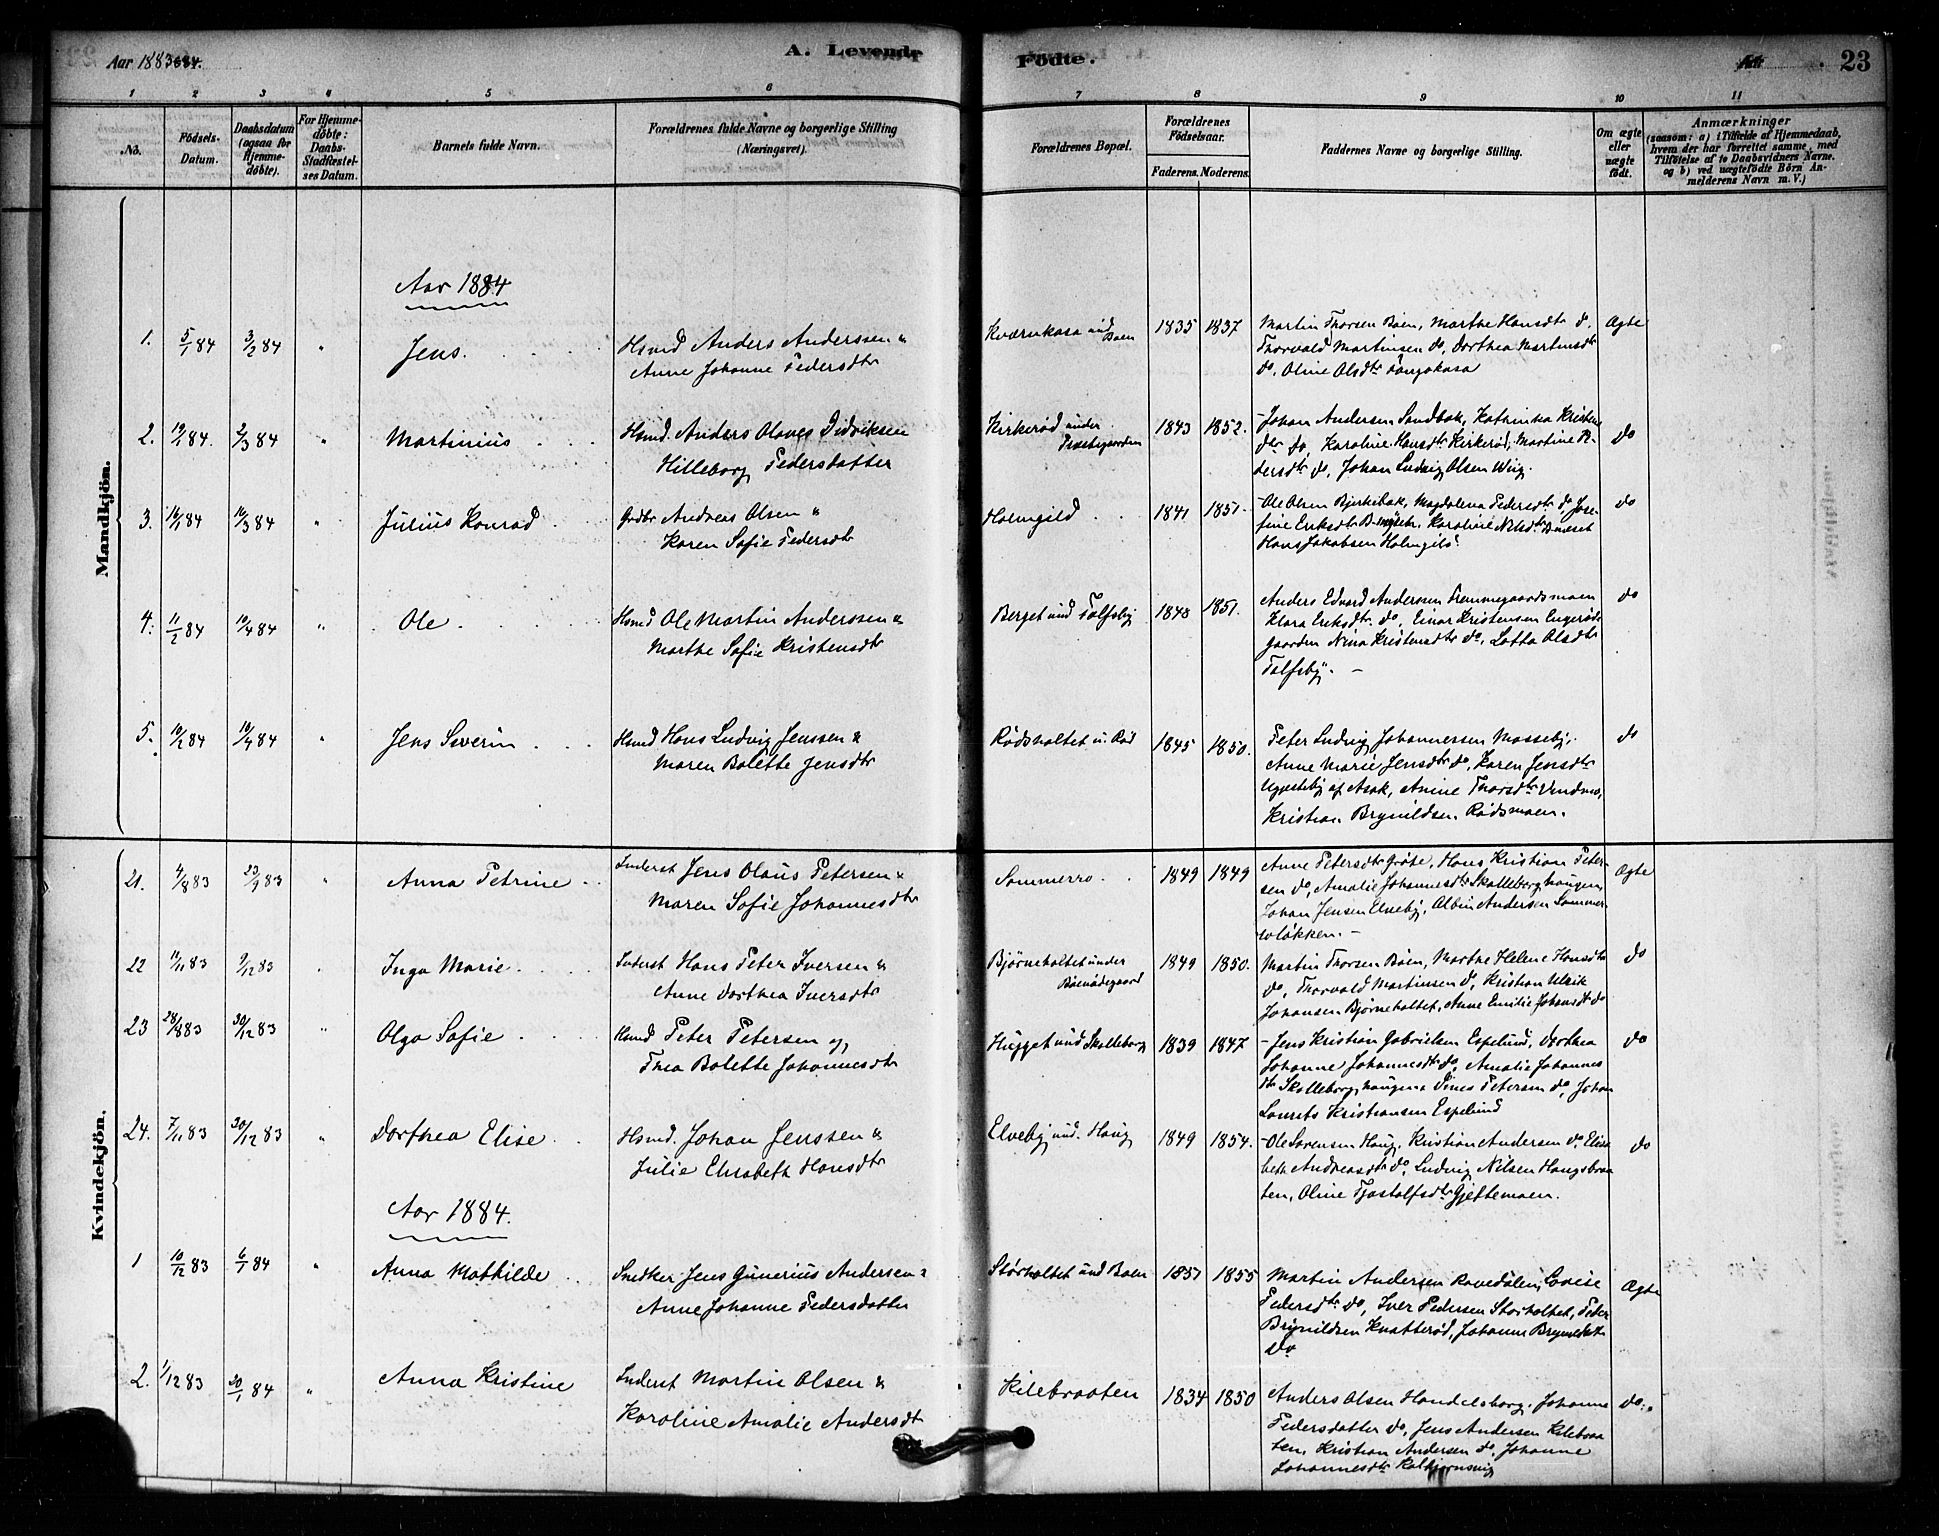 Aar 1883 & 84.
A. Levende Födte.
23
1 2 3 4 5 6 7 8 9 10 11
No.
Födsels-Datum.
Daabsdatum (ogsaa for Hjemme-döbte).
For Hjemme-döbte: Daabs-Stadfæstel-ses Datum.
Barnets fulde Navn.
Forældrenes fulde Navne og borgerlige Stilling
(Næringsvei).
Forældrenes Bopæl.
Forældrenes Födselsaar.
Faderens. Moderens.
Faddernes Navne og borgerlige Stilling.
Om ægte eller uægte födt.
Anmærkninger
(saasom: a) i Tilfælde af Hjemmedaab,
hvem der har forrettet samme, med
Tilföielse af to Daabsvidners Navne.
og b) ved uægtefödte Börn An-
melderens Navn m. V.)
Mandkjön.
Aar 1884
1. 5/1 84 3/2 84 " Jens. Hsmd Anders Anderssen &
Anne Johanne Pedersdtr
Kværnkasa und Boen 1835 1837
Martin Thorsen Boen, Marthe Hansdtr do.
Thorvald Martinsen do, Dorthea Martinsdtr
do, Oline Olsdtr
Ægte
2. 2/3 84 " Martinius Hsmd. Anders Olaves Didriksen
Hilleborg Pedersdatter
Kirkerød under Præstegaarden 1843 1852.
Johan Andersen Sandbak, Kathinka Kristens
dtr do, Karoline Hansdtr Kirkerød, Martine Pe-
dersdtr do, Johan Ludvig Olsen Wiig.
do
3. 14/1 84 16/3 84 " Julius Konrad Grdbr Andreas Olsen &
Karen Sofie Pedersdtr
Holmgild 1841 1851.
Ole Olsen Bjerkebak, Magdalena Pedersdtr do, Jose-
fine Eriksdtr Karoline Nilsdtr
Hans Jakobsen Holmgild
do
4. 11/2 84 " Ole Hsmd Ole Martin Anderssen &
Marthe Sofie Kristensdtr
Berget und Tolfsby 1848 1851.
Anders Edvard Anderssen
Klara Eriksdtr do, Einar Kristensen Engerøds
gaarden Nina Kristensdtr do, Lotta Olsdtr
Tolfsby. —
do
5. 10/2 84 " Jens Severin Hsmd Hans Ludvig Jenssen &
Maren Bolette Jensdtr
Rødsholtet u. Rød 1845 1850.
Peter Ludvig Johannessen Mosseby,
Anne Marie Jensdtr do, Karen Jensdtr
af Asak, Anine Thorsdtr
Kristian Brynildsen Rødsmoen.
do
Kvindekjön.
21. 4/8 83 23/9 83 " Anna Petrine Inderst Jens Olaus Petersen &
Maren Sofie Johannesdtr
Sommerro 1849 1849
Anne Petersdtr Grøte, Hans Kristian Peter-
sen do, Amalie Johannesdtr Skolleborghaugen,
Johan Jensen Elveby, Albin Andersen Sommer-
roløkken. —
Ægte
22 11/11 83 9/12 83 " Inga Marie Inderst Hans Peter Iversen &
Anne Dorthea Iversdtr
Bjørneholtet under Boenødegaard 1849 1850.
Martin Thorsen Boen, Marthe Helene Hansdtr
do, Thorvald Martinsen do, Kristian Ulrik
Johansen Bjørneholtet, Anne Emilie Johansdtr do
do
23 28/8 83 30/12 83 " Olga Sofie Hsmd Peter Petersen og
Thea Bolette Johannesdtr
Hugget und Skolleborg 1839 1847
Jens Kristian Gabrielsen Espelund, Dorthea
Johanne Johannesdtr do, Amalie Johannes
dtr Skolleborghaugene Petersen do, Johan
Laurits Kristiansen Espelund
do
24. 7/11 83 30/12 83 " Dorthea Elise Hsmd. Johan Jenssen &
Julie Elisabeth Hansdtr
Elveby und. Haug 1849 1854.
Ole Sørensen Haug, Kristian Andersen do, Elisa
beth Andreasdtr do, Ludvig Nilsen Haugsbraa
ten, Oline Tjostolfsdtr Gjettemoen.
do
Aar 1884.
1 10/12 83 6/1 84 " Anna Mathilde Snedker Jens Gunerius Andersen &
Anne Johanne Pedersdatter
Storholtet und Boen 1851 1855
Martin Andersen Ravedalen, Lovise
Pedersdtr do, Iver Pedersen Storholtet, Peder
Brynildsen Knatterød, Johanne Brynildsdtr
do
Ægte
2. 1/12 83 20/1 84 " Anna Kristine Inderst Martin Olsen &
Karoline Amalie Andersdtr
Kilebraaten 1834 1850
Anders Olsen Hondelsborg, Johanne
Pedersdatter do, Jens Andersen Kilebraa
ten, Kristian Andersen do, Johanne
Johannesdtr
do.